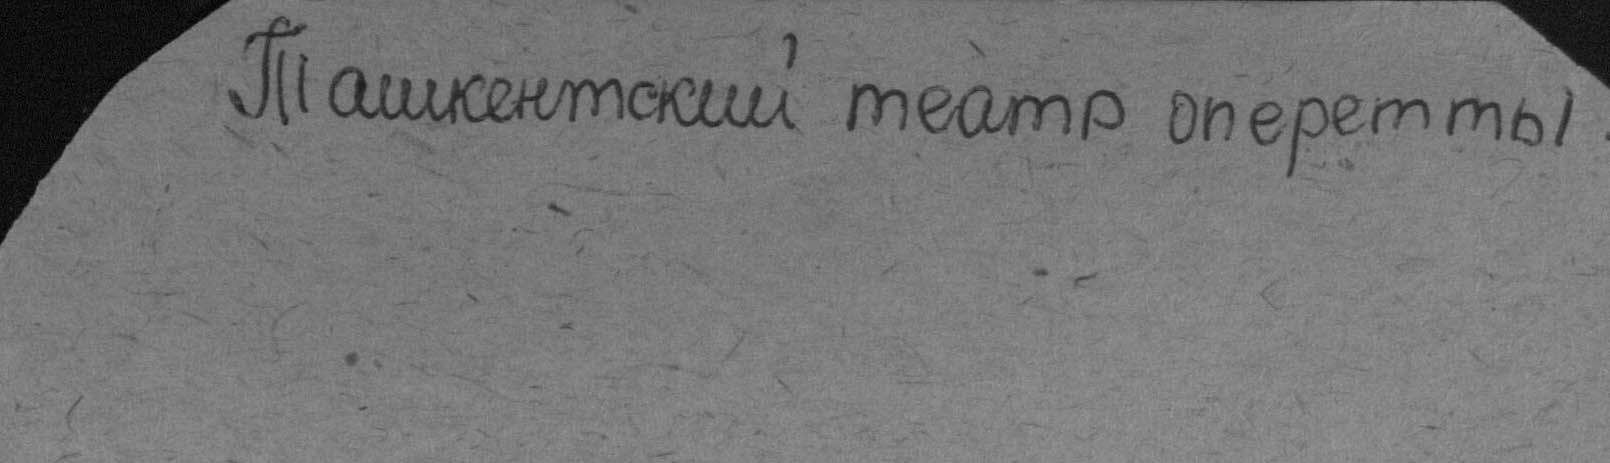 Ташкентский театр оперетты.